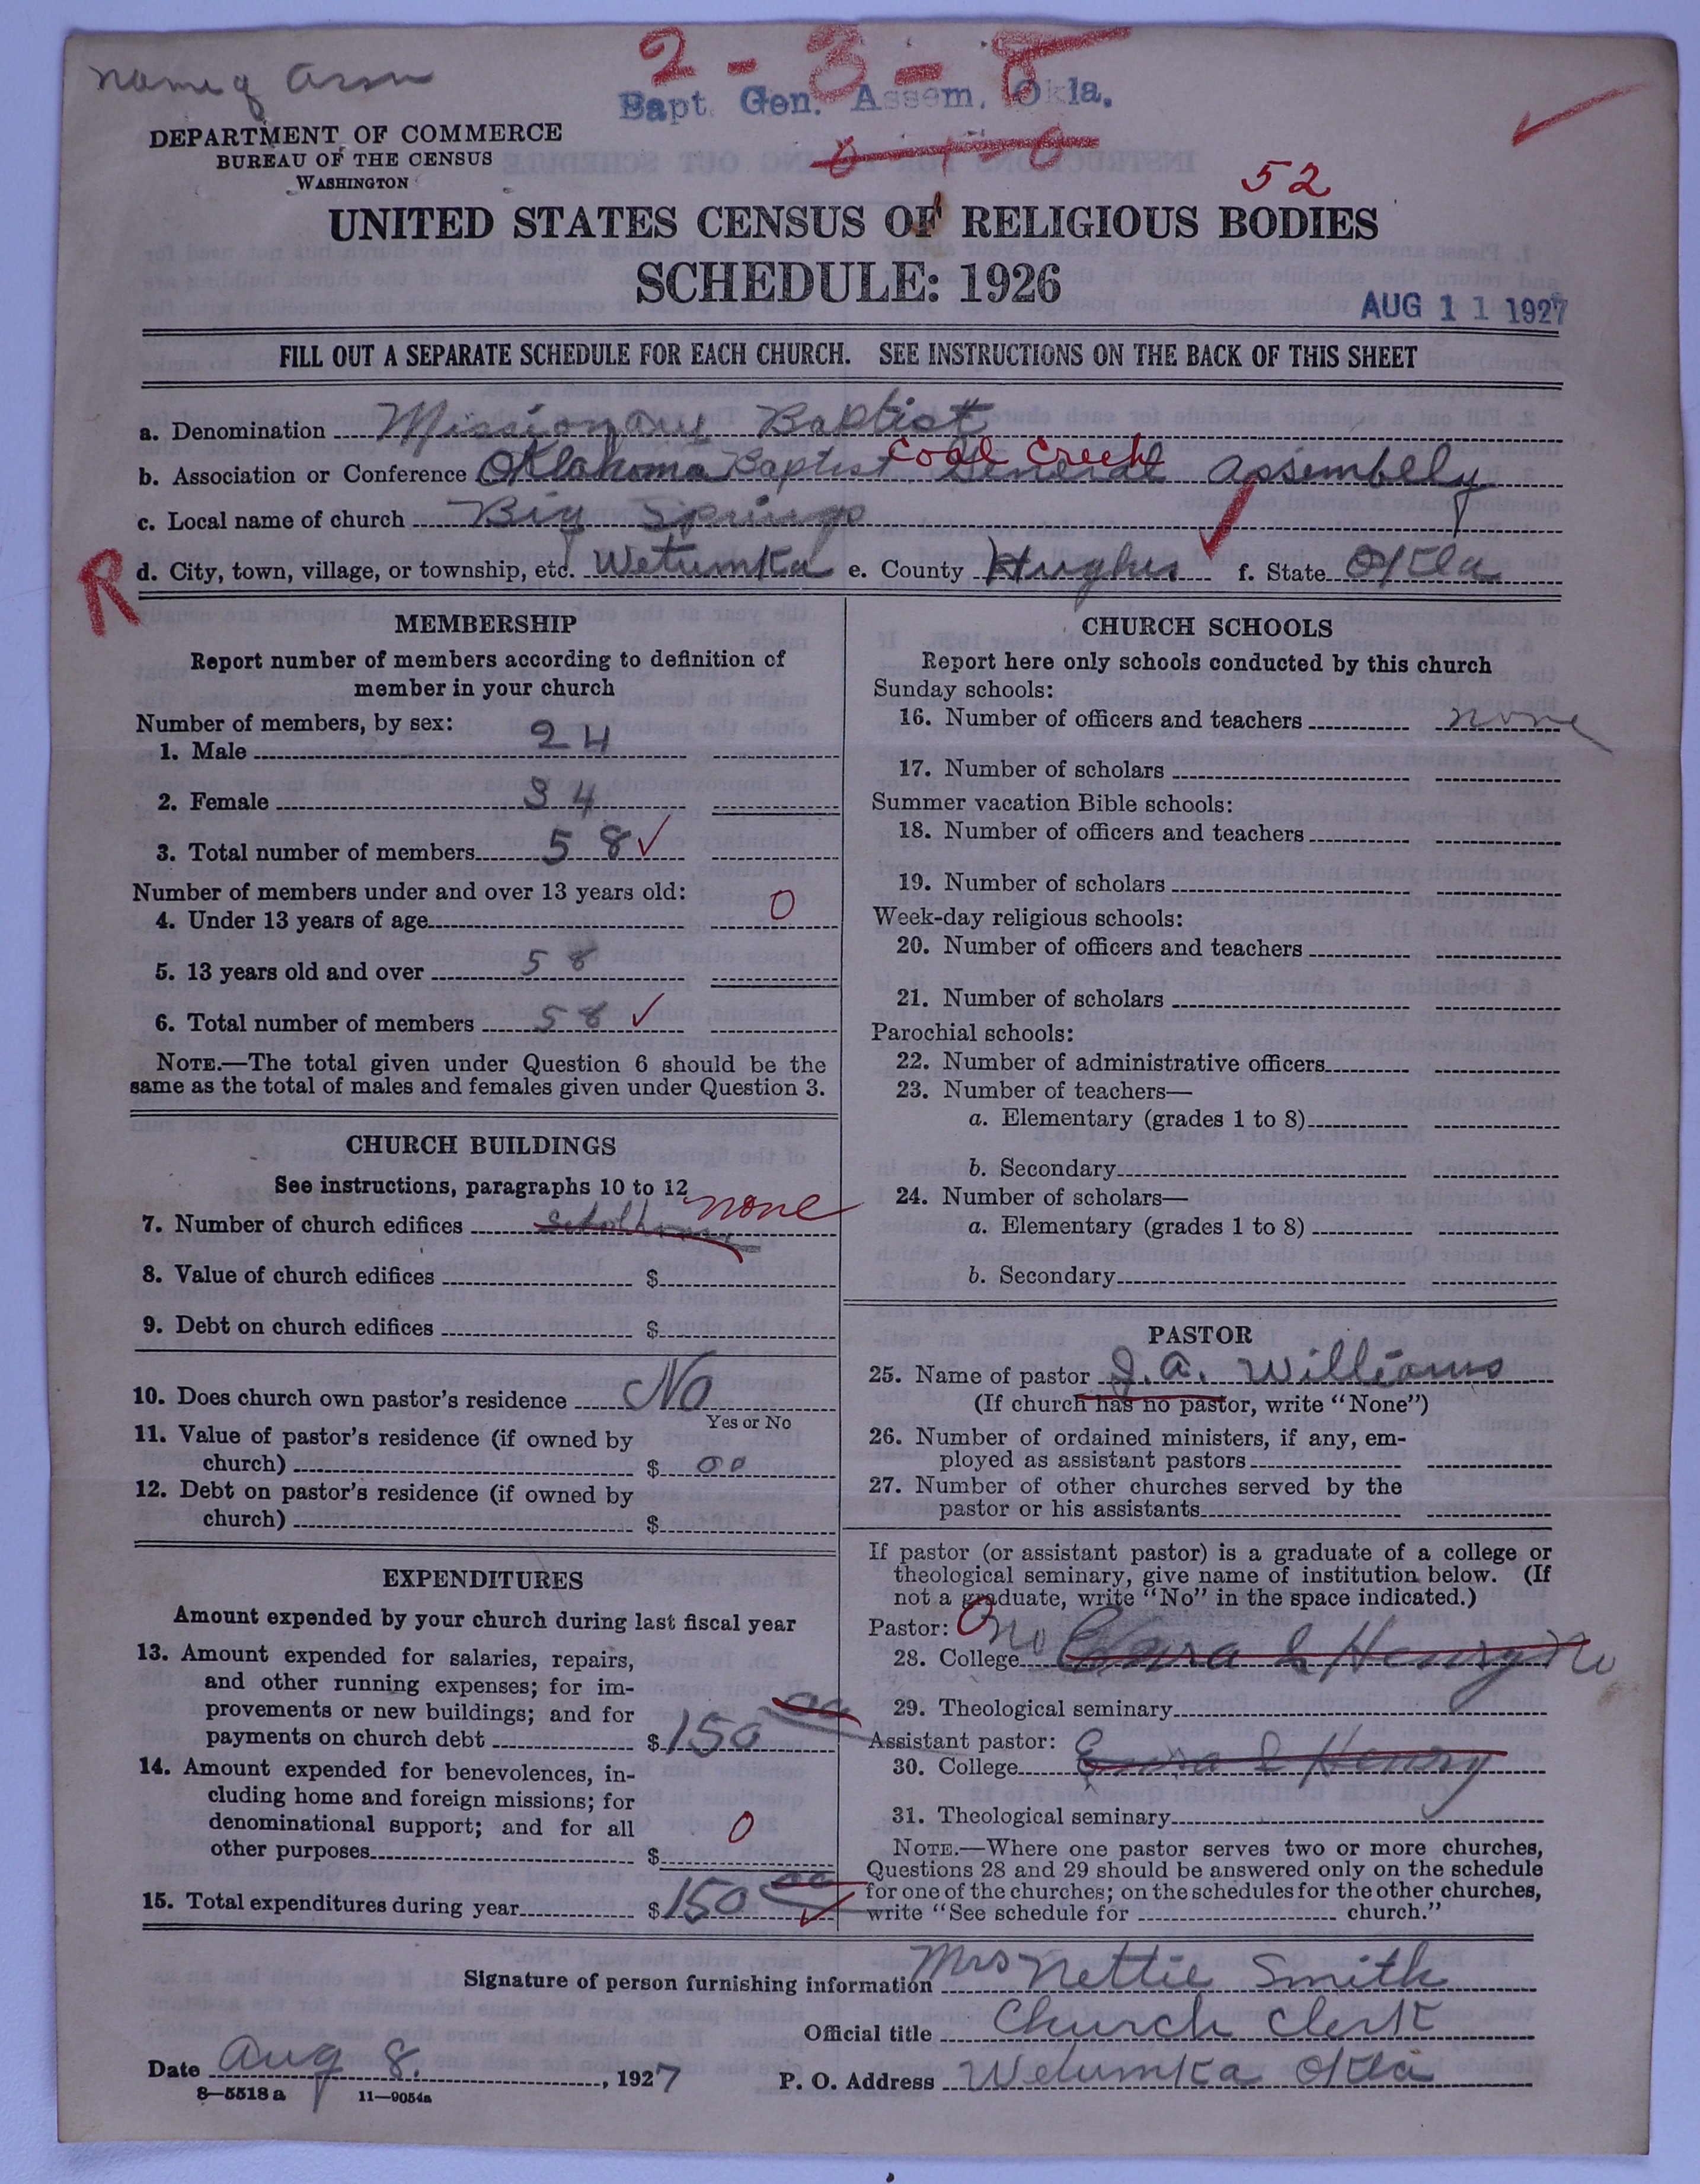 name of Assn
2-3-8
Bapt. Gen. Assem. Okla.
0-1-0
DEPARTMENT OF COMMERCE
BUREAU OF THE CENSUS
WASHINGTON
52
UNITED STATES CENSUS OF RELIGIOUS BODIES
SCHEDULE: 1926
AUG 11 1927
FILL OUT A SEPARATE SCHEDULE FOR EACH CHURCH. SEE INSTRUCTIONS ON THE BACK OF THIS SHEET
a. Denomination Missionary Baptist
Coal Creek
b. Association or Conference Oklahoma Baptist General Assembly
c. Local name of church Big Springs
R
d. City, town, village, or township, etc. Wetumka e. County Hughes f. State Okla
MEMBERSHIP
Report number of members according to definition of
member in your church
Number of members, by sex:
1. Male 24
2. Female 34
3. Total number of members 58
Number of members under and over 13 years old:
4. Under 13 years of age 0
5. 13 years old and over 58
6. Total number of members 58
NOTE.—The total given under Question 6 should be the
same as the total of males and females given under Question 3.
CHURCH BUILDINGS
See instructions, paragraphs 10 to 12
7. Number of church edifices none
8. Value of church edifices $
9. Debt on church edifices $
10. Does church own pastor's residence No
Yes or No
11. Value of pastor's residence (if owned by
church) $ 00
12. Debt on pastor's residence (if owned by
church) $
EXPENDITURES
Amount expended by your church during last fiscal year
13. Amount expended for salaries, repairs,
and other running expenses; for im-
provements or new buildings; and for
payments on church debt $150 00
14. Amount expended for benevolences, in-
cluding home and foreign missions; for
denominational support; and for all
other purposes $ 0
15. Total expenditures during year $150 00
CHURCH SCHOOLS
Report here only schools conducted by this church
Sunday schools:
16. Number of officers and teachers none
17. Number of scholars
Summer vacation Bible schools:
18. Number of officers and teachers
19. Number of scholars
Week-day religious schools:
20. Number of officers and teachers
21. Number of scholars
Parochial schools:
22. Number of administrative officers
23. Number of teachers—
a. Elementary (grades 1 to 8)
b. Secondary
24. Number of scholars—
a. Elementary (grades 1 to 8)
b. Secondary
PASTOR
25. Name of pastor J. A. Williams
(If church has no pastor, write "None")
26. Number of ordained ministers, if any, em-
ployed as assistant pastors
27. Number of other churches served by the
pastor or his assistants
If pastor (or assistant pastor) is a graduate of a college or
theological seminary, give name of institution below. (If
not a graduate, write "No" in the space indicated.)
Pastor: 0
28. College no Henry No
29. Theological seminary
Assistant pastor:
30. College Henry
31. Theological seminary
NOTE.—Where one pastor serves two or more churches,
Questions 28 and 29 should be answered only on the schedule
for one of the churches; on the schedules for the other churches,
write "See schedule for church."
Signature of person furnishing information Mrs Nettie Smith
Official title Church Clerk
Date Aug 8., 1927 P. O. Address Wetumka Okla
8—5518 a 11—9054a